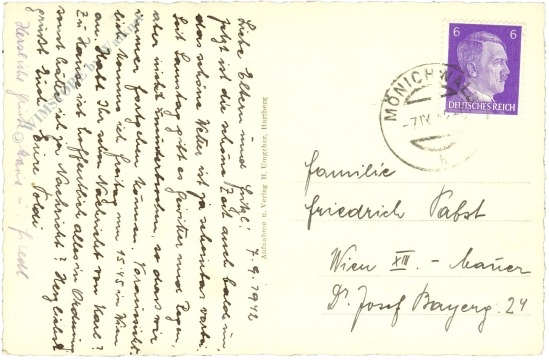 7.9.1942
Liebe Eltern und Fritzl!
Jetzt ist die schöne Zeit auch bald um,
das schöne Wetter ist ja scheinbar vorbei.
Seit Samstag gibt es Gewitter und Regen,
aber nicht ununterbrochen, so dass wir
immer fortgehen können. Voraussicht-
lich komme ich Freitag um 15.45 in Wien
an. Habt Ihr schon Nachricht von Karl?
Zu Hause ist hoffentlich alles in Ordnung
sonst hätte ich ja Nachricht? Herzlichst
grüßt Euch Eure Poldi
Herzliche Grüße
Aufnahme u. Verlag H. Umgeher, Hartberg
6 6
DEUTSCHES REICH
MÖNICHWALD
-7.IX.
b
Familie
Friedrich Pabst
Wien XIII. - Mauer
Dr. Josef Bayerg. 24